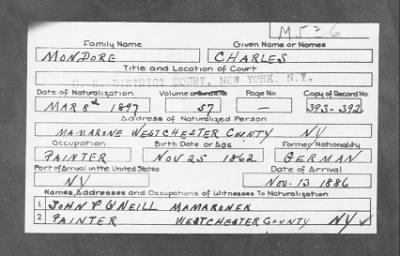 M536
Family Name Given Name or Names
MONDORE CHARLES
Title and Location of Court
U. S. DISTRICT COURT, NEW YORK, N.Y.
Date of Naturalization Volume or Page No. Copy of Record No.
MAR 8th 1897 57 — 393-392
Address of Naturalized Person
MAMARONE WESTCHESTER COUNTY NY
Occupation Birth Date or Age Former Nationality
PAINTER NOV 25 1862 GERMAN
Port of Arrival in the United States Date of Arrival
NY NOV. 13 1886
Names, Addresses and Occupations of Witnesses To Naturalization
1 JOHN P O'NEILL MAMARONEK
2 PAINTER WESTCHESTER COUNTY NY